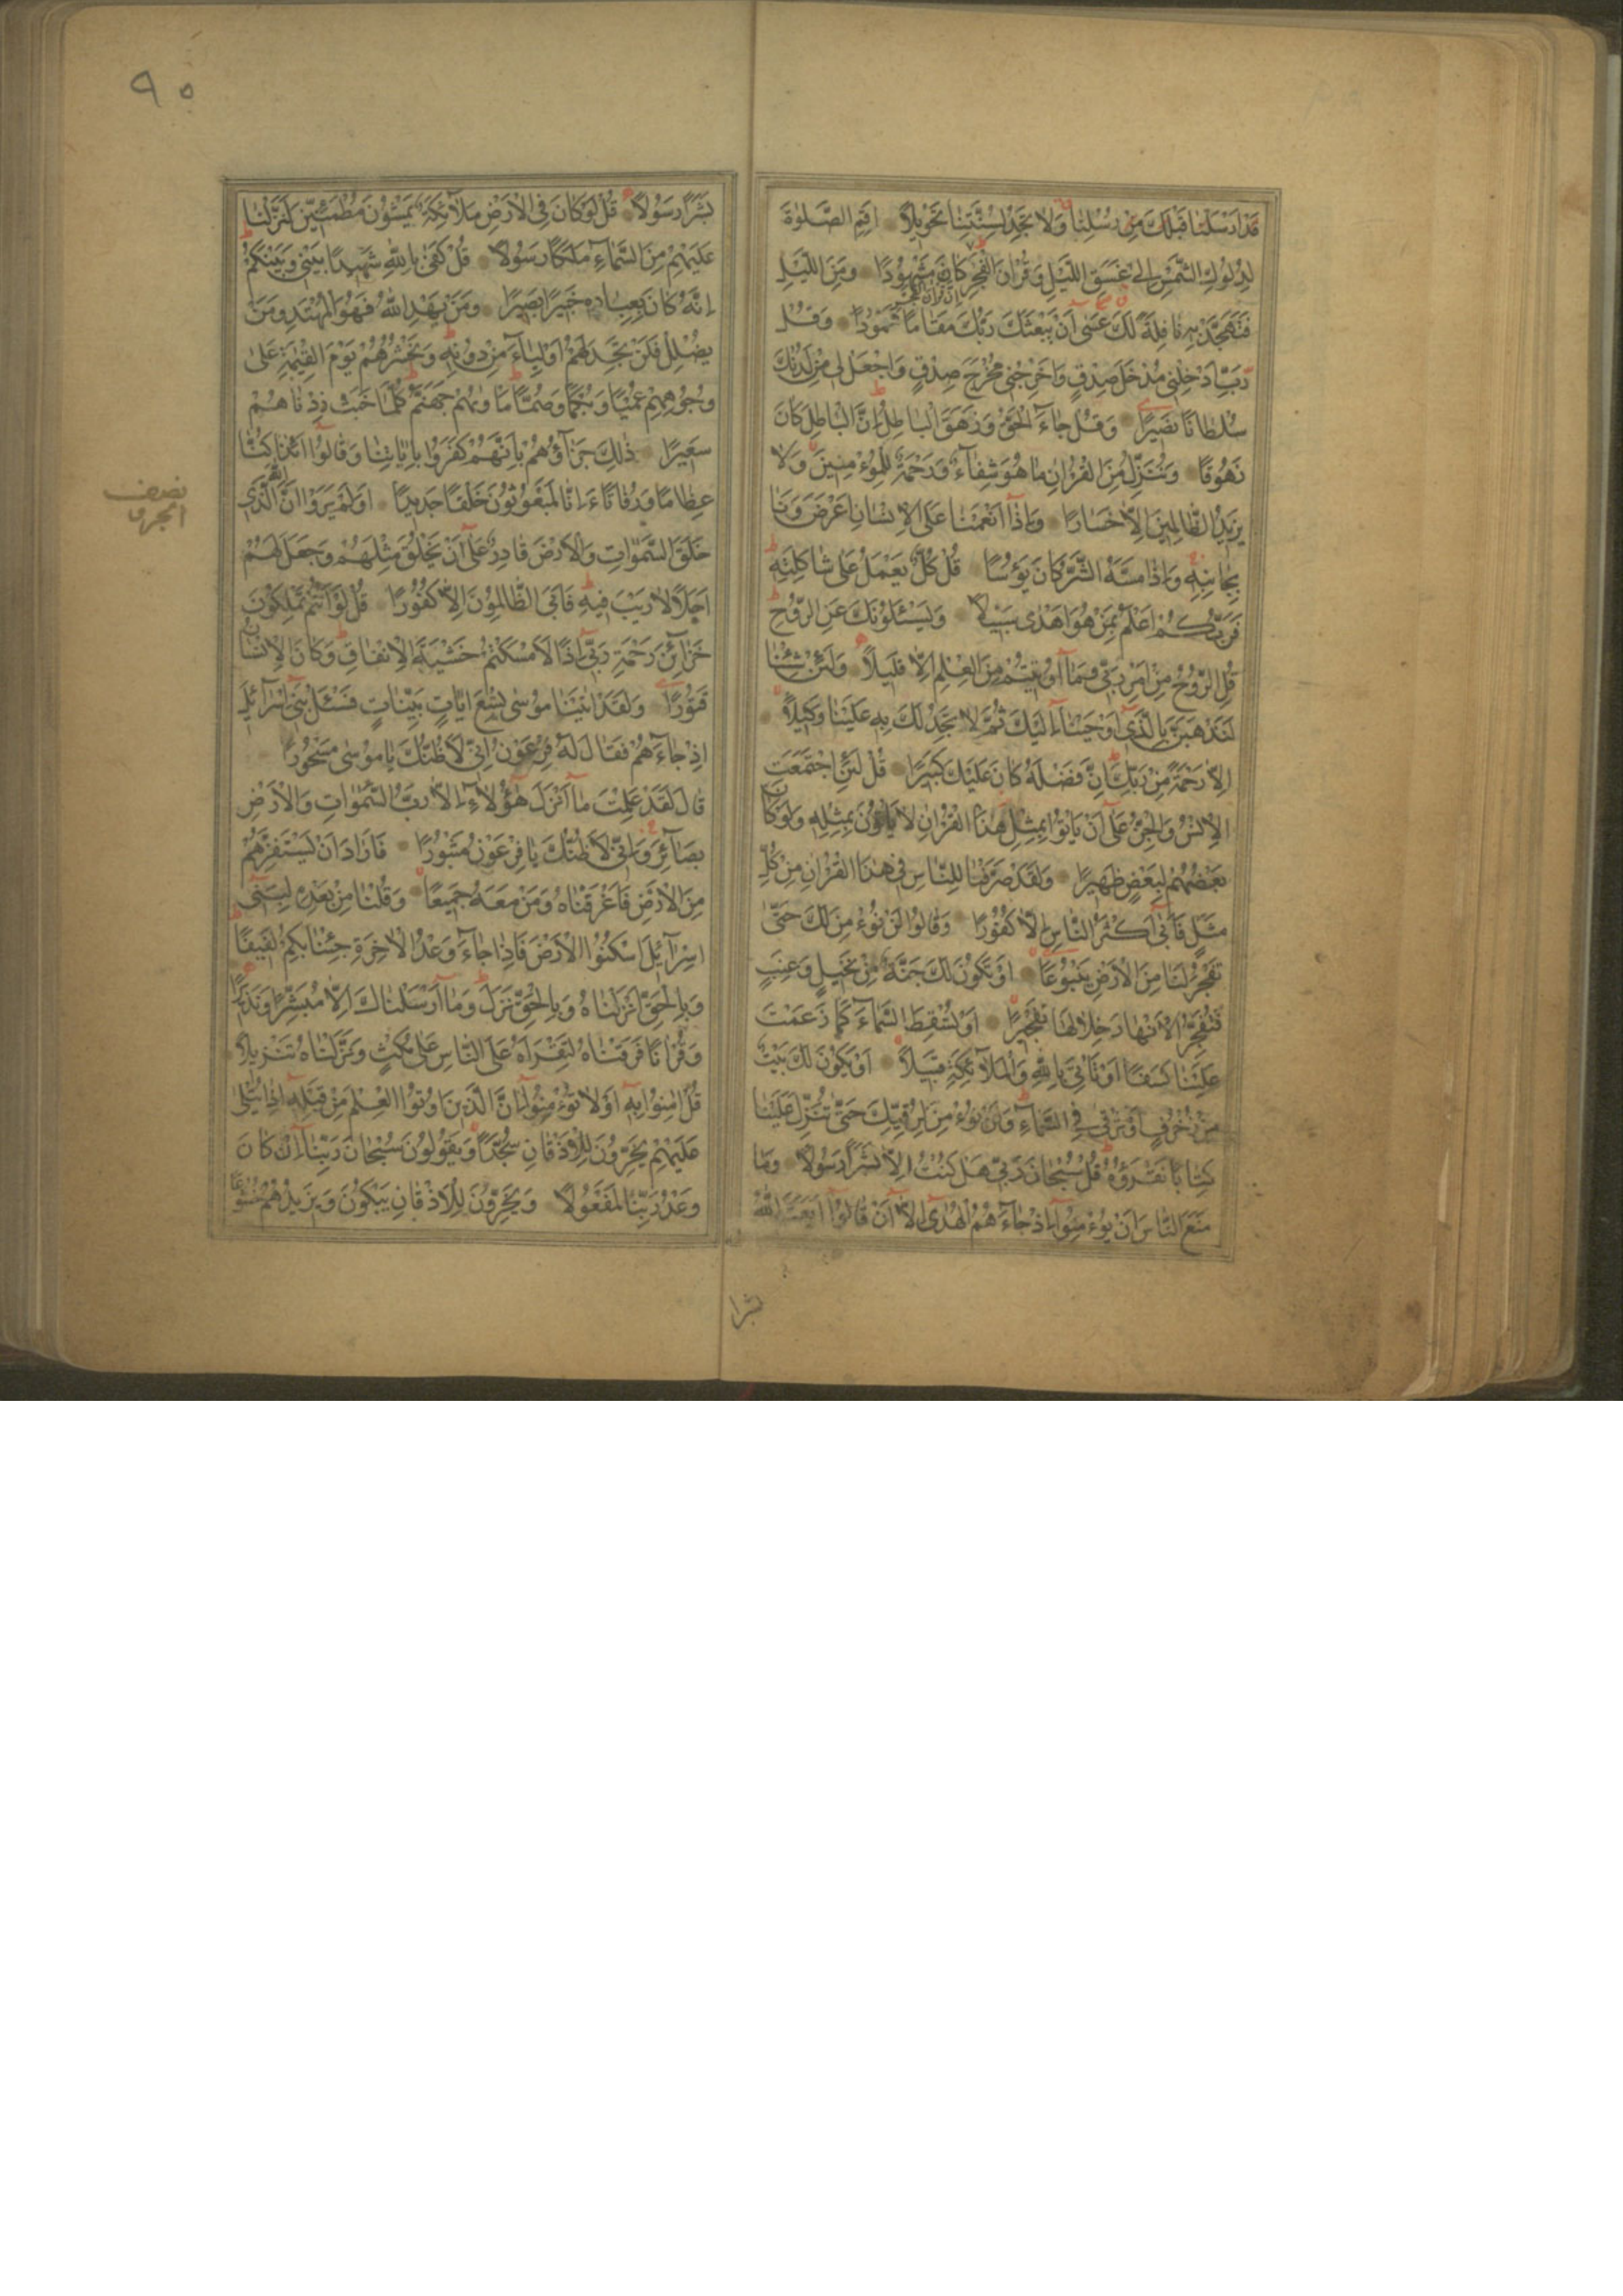 قَدْ اَرْسَلْنَا قَبْلَكَ مِنْ رُسُلِنَا وَلَا تَجِدُ لِسُنَّتِنَا تَحْوِيلًا اَقِمِ الصَّلٰوةَ
لِدُلُوكِ الشَّمْسِ اِلىٰ غَسَقِ اللَّيْلِ وَقُرْاٰنَ الْفَجْرِ كَانَ مَشْهُودًا وَمِنَ اللَّيْلِ
اِنَّ قُرْاٰنَ الْفَجْرِ
فَتَهَجَّدْ بِهِ نَافِلَةً لَكَ عَسٰى اَنْ يَبْعَثَكَ رَبُّكَ مَقَامًا مَحْمُودًا وَقُلْ
رَبِّ اَدْخِلْنِى مُدْخَلَ صِدْقٍ وَاَخْرِجْنِى مُخْرَجَ صِدْقٍ وَاجْعَلْ لِى مِنْ لَدُنْكَ
سُلْطَانًا نَصِيرًا وَقُلْ جَاءَ الْحَقُّ وَزَهَقَ الْبَاطِلُ اِنَّ الْبَاطِلَ كَانَ
زَهُوقًا وَنُنَزِّلُ مِنَ الْقُرْاٰنِ مَا هُوَ شِفَاءٌ وَرَحْمَةٌ لِلْمُؤْمِنِينَ وَلَا
يَزِيدُ الظَّالِمِينَ اِلَّا خَسَارًا وَاِذَا اَنْعَمْنَا عَلَى الْاِنْسَانِ اَعْرَضَ وَنَاٰ
بِجَانِبِهِ وَاِذَا مَسَّهُ الشَّرُّ كَانَ يَؤُسًا قُلْ كُلٌّ يَعْمَلُ عَلٰى شَاكِلَتِهِ
فَرَبُّكُمْ اَعْلَمُ بِمَنْ هُوَ اَهْدٰى سَبِيلًا وَيَسْئَلُونَكَ عَنِ الرُّوحِ
قُلِ الرُّوحُ مِنْ اَمْرِ رَبِّى وَمَا اُوتِيتُمْ مِنَ الْعِلْمِ اِلَّا قَلِيلًا وَلَئِنْ شِئْنَا
لَنَذْهَبَنَّ بِالَّذِى اَوْحَيْنَا اِلَيْكَ ثُمَّ لَا تَجِدُ لَكَ بِهِ عَلَيْنَا وَكِيلًا
اِلَّا رَحْمَةً مِنْ رَبِّكَ اِنَّ فَضْلَهُ كَانَ عَلَيْكَ كَبِيرًا قُلْ لَئِنِ اجْتَمَعَتِ
الْاِنْسُ وَالْجِنُّ عَلٰى اَنْ يَاْتُوا بِمِثْلِ هٰذَا الْقُرْاٰنِ لَا يَاْتُونَ بِمِثْلِهِ وَلَوْ كَانَ
بَعْضُهُمْ لِبَعْضٍ ظَهِيرًا وَلَقَدْ صَرَّفْنَا لِلنَّاسِ فِى هٰذَا الْقُرْاٰنِ مِنْ كُلِّ
مَثَلٍ فَاَبٰى اَكْثَرُ النَّاسِ اِلَّا كُفُورًا وَقَالُوا لَنْ نُؤْمِنَ لَكَ حَتّٰى
تَفْجُرَ لَنَا مِنَ الْاَرْضِ يَنْبُوعًا اَوْ تَكُونَ لَكَ جَنَّةٌ مِنْ نَخِيلٍ وَعِنَبٍ
فَتُفَجِّرَ الْاَنْهَارَ خِلَالَهَا تَفْجِيرًا اَوْ تُسْقِطَ السَّمَاءَ كَمَا زَعَمْتَ
عَلَيْنَا كِسَفًا اَوْ تَاْتِىَ بِاللّٰهِ وَالْمَلَائِكَةِ قَبِيلًا اَوْ يَكُونَ لَكَ بَيْتٌ
مِنْ زُخْرُفٍ اَوْ تَرْقٰى فِى السَّمَاءِ وَلَنْ نُؤْمِنَ لِرُقِيِّكَ حَتّٰى تُنَزِّلَ عَلَيْنَا
كِتَابًا نَقْرَؤُهُ قُلْ سُبْحَانَ رَبِّى هَلْ كُنْتُ اِلَّا بَشَرًا رَسُولًا وَمَا
مَنَعَ النَّاسَ اَنْ يُؤْمِنُوا اِذْ جَاءَهُمُ الْهُدٰى اِلَّا اَنْ قَالُوا اَبَعَثَ اللّٰهُ
بشرا
٩٥
بَشَرًا رَسُولًا قُلْ لَوْ كَانَ فِى الْاَرْضِ مَلَائِكَةٌ يَمْشُونَ مُطْمَئِنِّينَ لَنَزَّلْنَا
عَلَيْهِمْ مِنَ السَّمَاءِ مَلَكًا رَسُولًا قُلْ كَفٰى بِاللّٰهِ شَهِيدًا بَيْنِى وَبَيْنَكُمْ
اِنَّهُ كَانَ بِعِبَادِهِ خَبِيرًا بَصِيرًا وَمَنْ يَهْدِ اللّٰهُ فَهُوَ الْمُهْتَدِ وَمَنْ
يُضْلِلْ فَلَنْ تَجِدَ لَهُمْ اَوْلِيَاءَ مِنْ دُونِهِ وَنَحْشُرُهُمْ يَوْمَ الْقِيٰمَةِ عَلٰى
وُجُوهِهِمْ عُمْيًا وَبُكْمًا وَصُمًّا مَاْوٰيهُمْ جَهَنَّمُ كُلَّمَا خَبَتْ زِدْنَاهُمْ
سَعِيرًا ذٰلِكَ جَزَاؤُهُمْ بِاَنَّهُمْ كَفَرُوا بِاٰيَاتِنَا وَقَالُوا ءَاِذَا كُنَّا
عِظَامًا وَرُفَاتًا ءَاِنَّا لَمَبْعُوثُونَ خَلْقًا جَدِيدًا اَوَلَمْ يَرَوْا اَنَّ اللّٰهَ الَّذِى
خَلَقَ السَّمٰوَاتِ وَالْاَرْضَ قَادِرٌ عَلٰى اَنْ يَخْلُقَ مِثْلَهُمْ وَجَعَلَ لَهُمْ
اَجَلًا لَا رَيْبَ فِيهِ فَاَبَى الظَّالِمُونَ اِلَّا كُفُورًا قُلْ لَوْ اَنْتُمْ تَمْلِكُونَ
خَزَائِنَ رَحْمَةِ رَبِّى اِذًا لَاَمْسَكْتُمْ خَشْيَةَ الْاِنْفَاقِ وَكَانَ الْاِنْسَانُ
قَتُورًا وَلَقَدْ اٰتَيْنَا مُوسٰى تِسْعَ اٰيَاتٍ بَيِّنَاتٍ فَسْئَلْ بَنِى اِسْرَائِلَ
اِذْ جَاءَهُمْ فَقَالَ لَهُ فِرْعَوْنُ اِنِّى لَاَظُنُّكَ يَا مُوسٰى مَسْحُورًا
قَالَ لَقَدْ عَلِمْتَ مَا اَنْزَلَ هٰؤُلَاءِ اِلَّا رَبُّ السَّمٰوَاتِ وَالْاَرْضِ
بَصَائِرَ وَاِنِّى لَاَظُنُّكَ يَا فِرْعَوْنُ مَثْبُورًا فَاَرَادَ اَنْ يَسْتَفِزَّهُمْ
مِنَ الْاَرْضِ فَاَغْرَقْنَاهُ وَمَنْ مَعَهُ جَمِيعًا وَقُلْنَا مِنْ بَعْدِهِ لِبَنِى
اِسْرَائِيلَ اسْكُنُوا الْاَرْضَ فَاِذَا جَاءَ وَعْدُ الْاٰخِرَةِ جِئْنَا بِكُمْ لَفِيفًا
وَبِالْحَقِّ اَنْزَلْنَاهُ وَبِالْحَقِّ نَزَلَ وَمَا اَرْسَلْنَاكَ اِلَّا مُبَشِّرًا وَنَذِيرًا
وَقُرْاٰنًا فَرَقْنَاهُ لِتَقْرَاَهُ عَلَى النَّاسِ عَلٰى مُكْثٍ وَنَزَّلْنَاهُ تَنْزِيلًا
قُلْ اٰمِنُوا بِهِ اَوْ لَا تُؤْمِنُوا اِنَّ الَّذِينَ اُوتُوا الْعِلْمَ مِنْ قَبْلِهِ اِذَا يُتْلٰى
عَلَيْهِمْ يَخِرُّونَ لِلْاَذْقَانِ سُجَّدًا وَيَقُولُونَ سُبْحَانَ رَبِّنَا اِنْ كَانَ
وَعْدُ رَبِّنَا لَمَفْعُولًا وَيَخِرُّونَ لِلْاَذْقَانِ يَبْكُونَ وَيَزِيدُهُمْ خُشُوعًا
نصف
الجزء